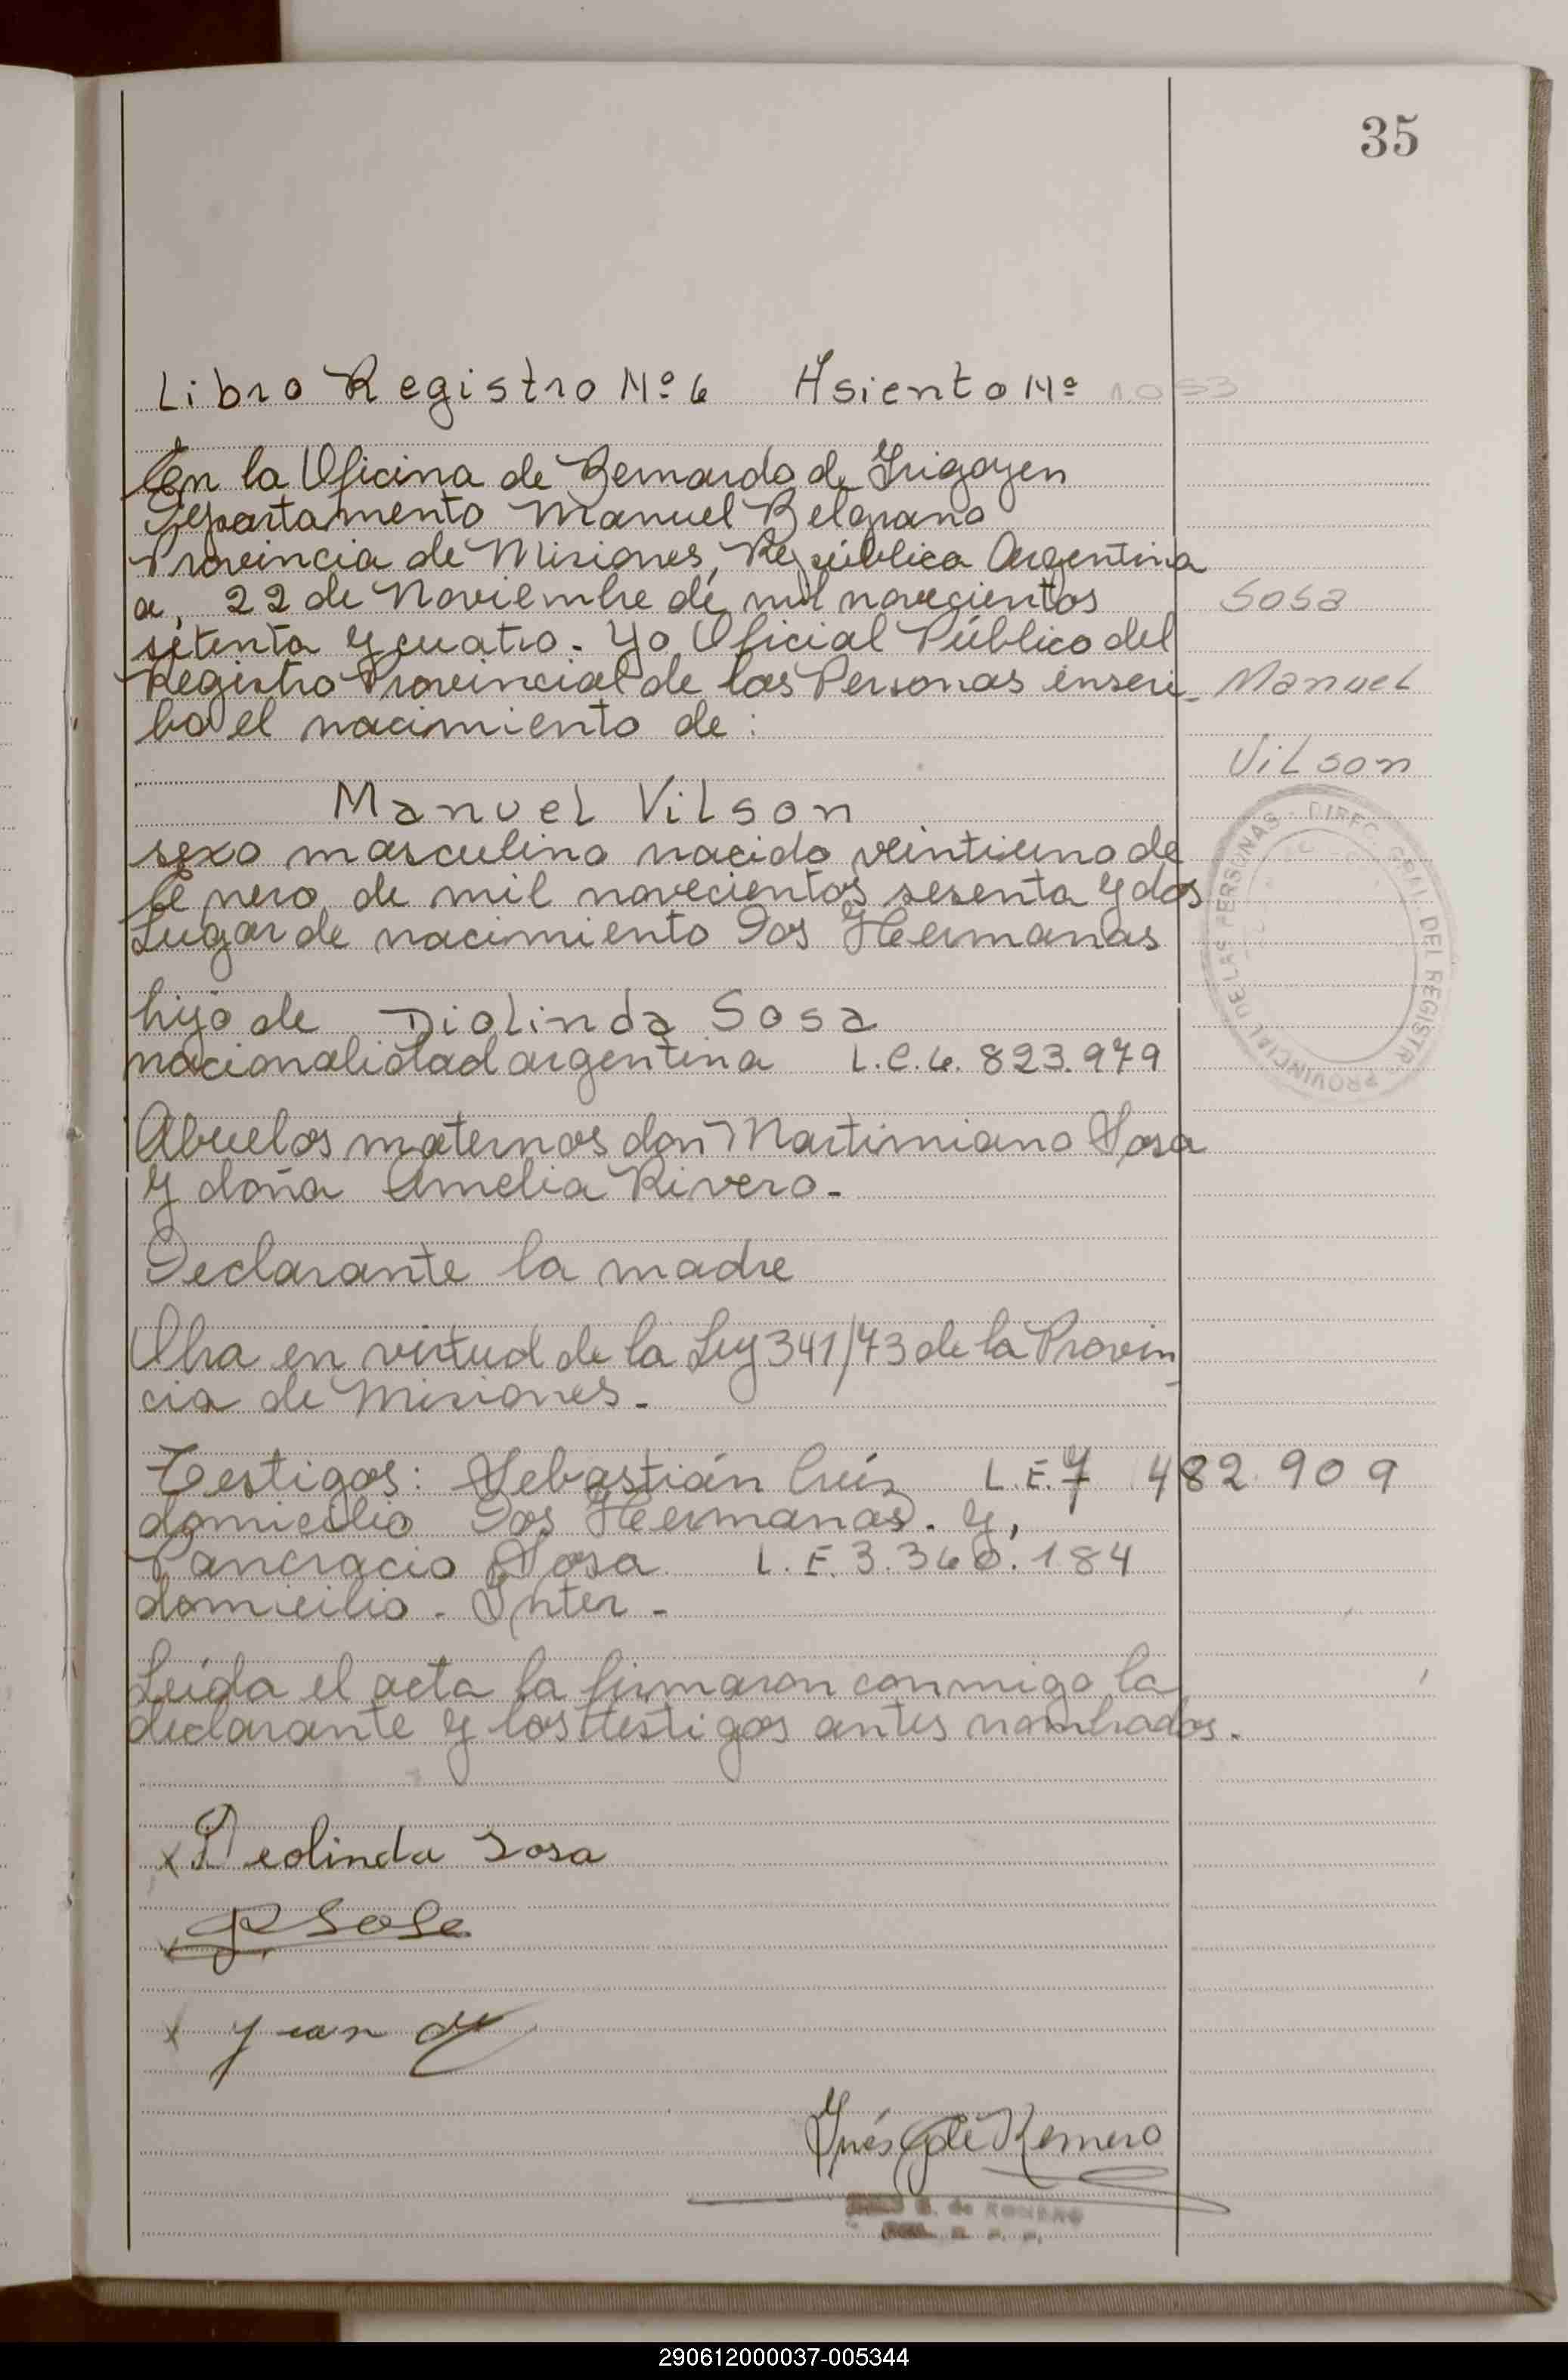 35
Libro Registro Nº 6 Asiento Nº 1.053
En la Oficina de Bernardo de Irigoyen
Departamento Manuel Belgrano
Provincia de Misiones, República Argentina
a, 22 de Noviembre de mil novecientos
setenta y cuatro. Yo Oficial Público del
Registro Provincial de las Personas inscri-
bo el nacimiento de:
Sosa
Manuel
Vilson
Manuel Vilson
sexo masculino nacido veintiuno de
Enero de mil novecientos sesenta y dos
Lugar de nacimiento Dos Hermanas
hijo de Diolinda Sosa
nacionalidad argentina L.C. 6. 823.979
Abuelos maternos don Martimiano Sosa
y doña Amelia Rivero.-
Declarante la madre
Obra en virtud de la Ley 341/73 de la Provin-
cia de Misiones.-
Testigos: Sebastián L.E. 7 482 909
domicilio Dos Hermanas. y,
Pancracio Sosa L.E. 3.360.184
domicilio - Inter.-
Leída el acta la firmaron conmigo la
declarante y los testigos antes nombrados.-
x Deolinda Sosa
x P Sosa
x
Inés G de Romero
G. de ROMERO
DIREC. GRAL. DEL REGISTR. PROVINCIAL DE LAS PERSONAS
290612000037-005344